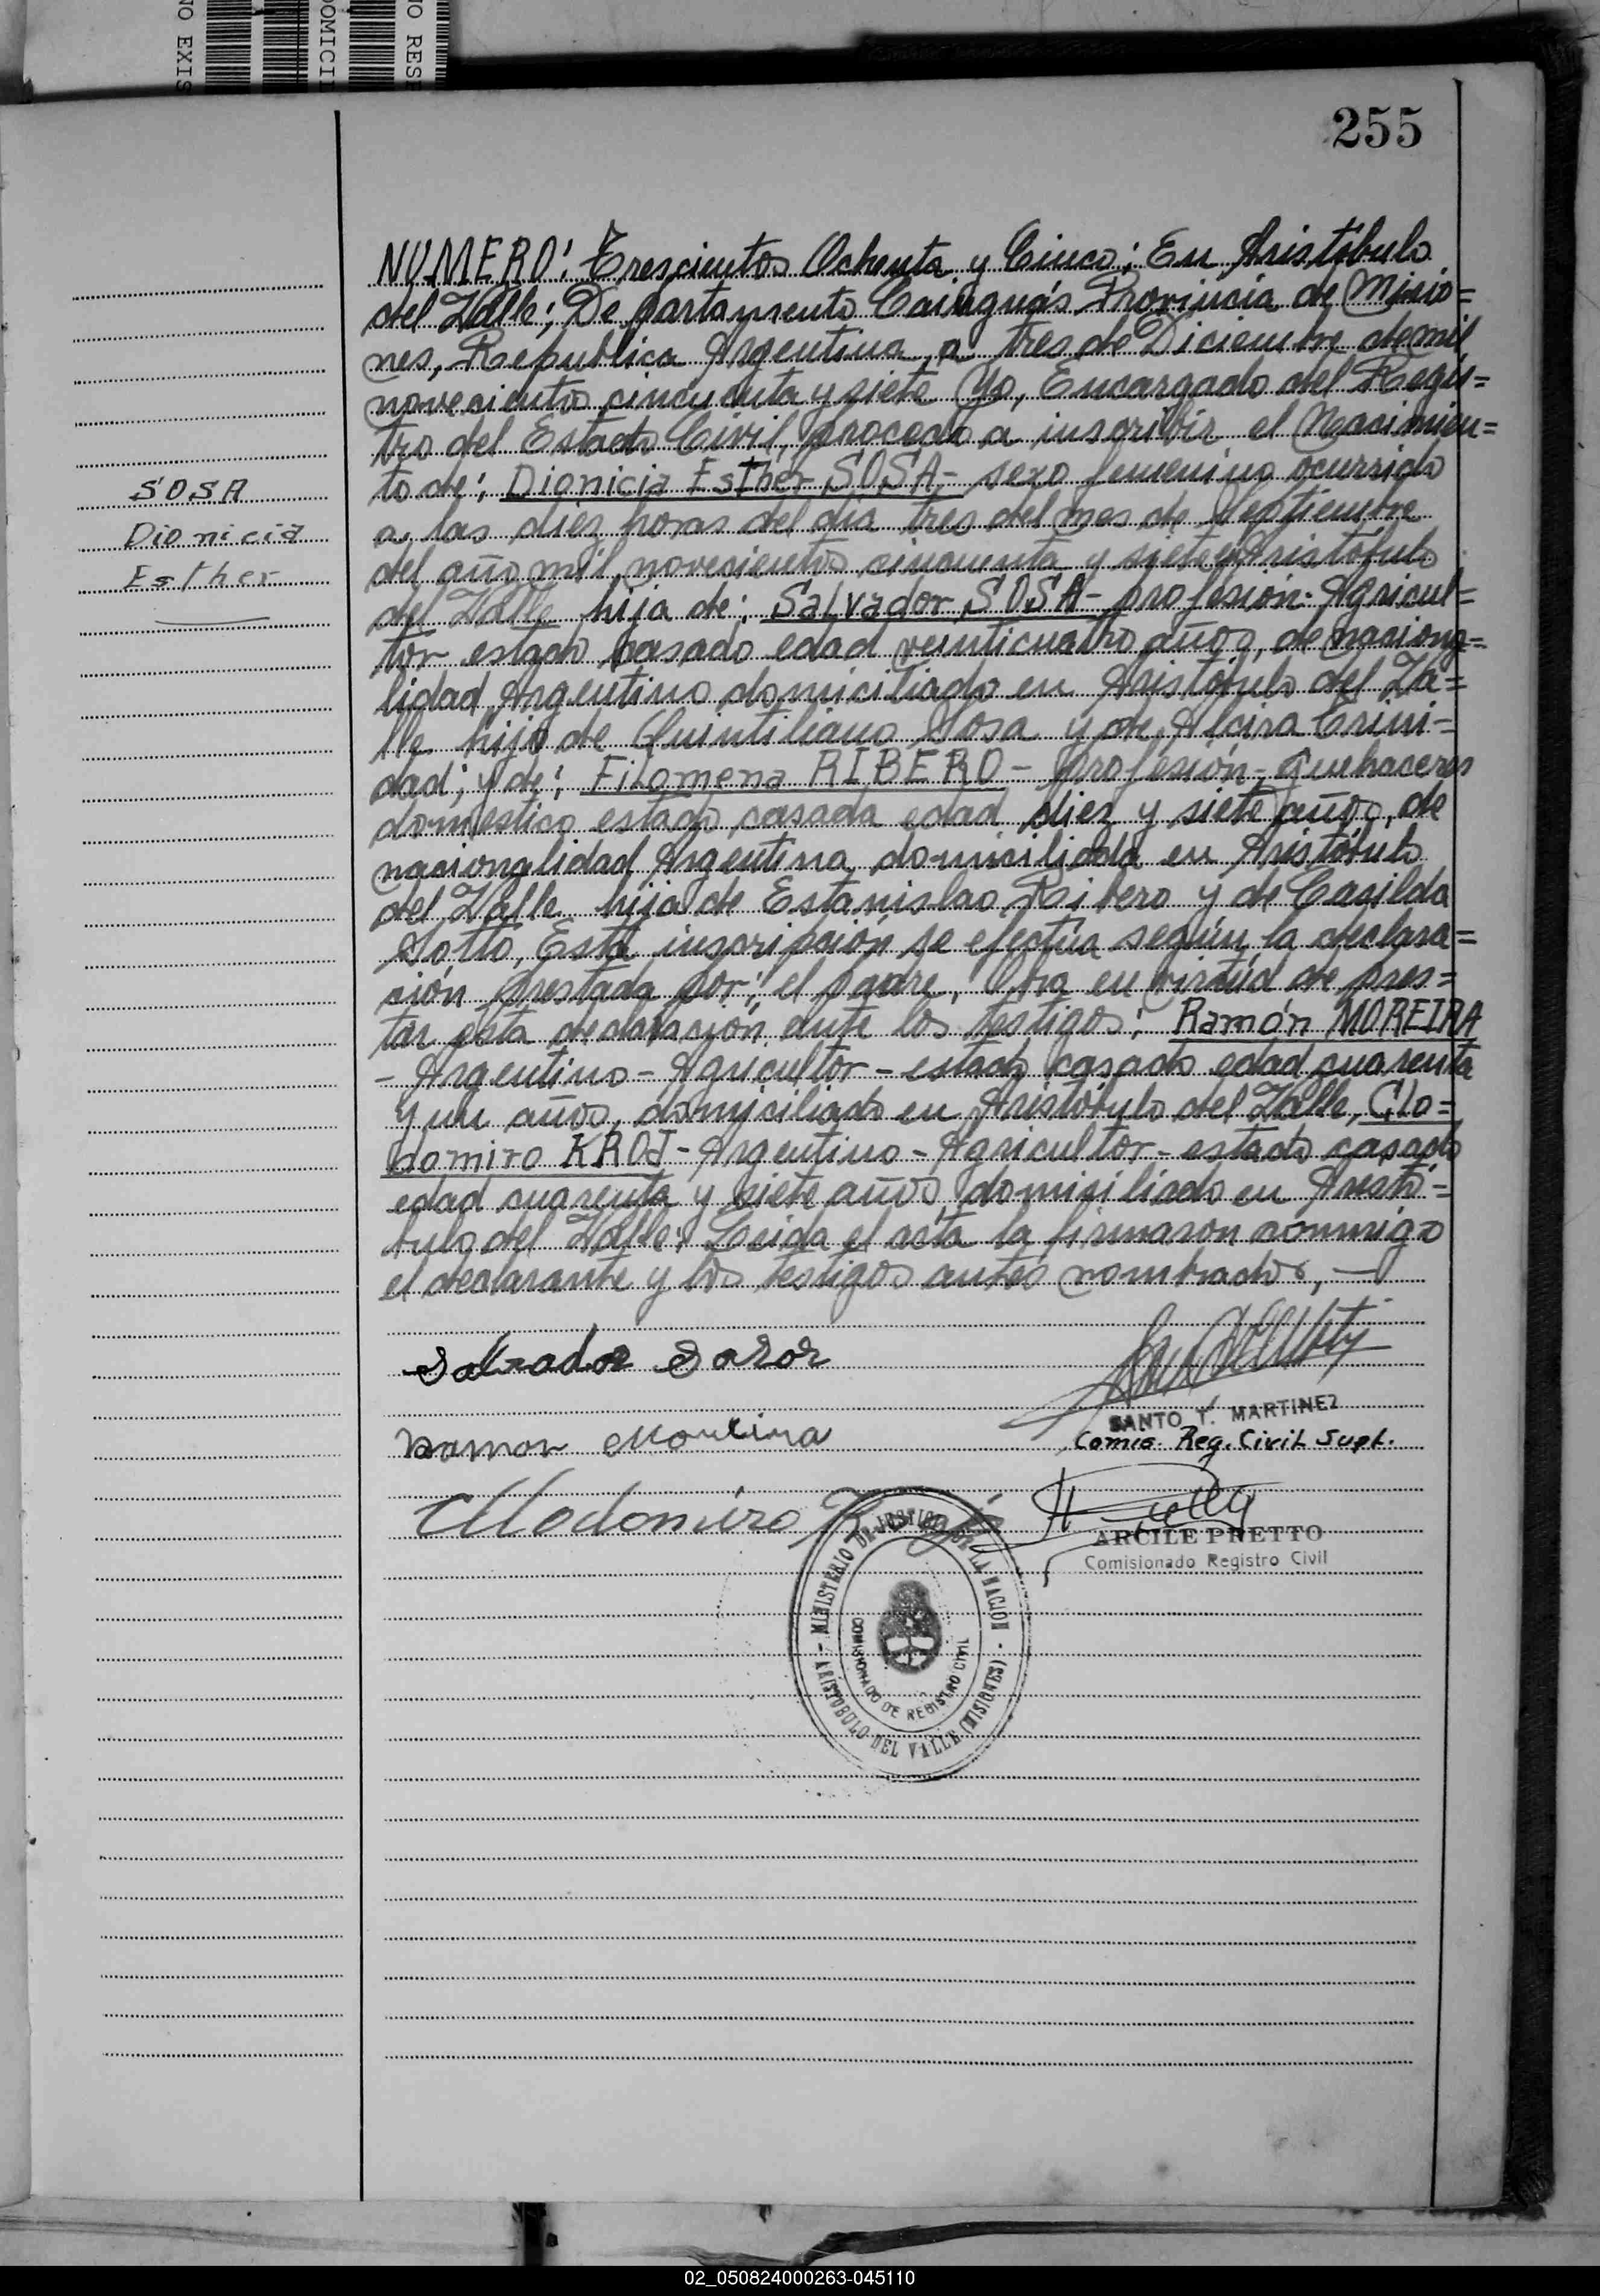 NO EXIS
DOMICIL
NO RESP
255
NUMERO: Trescientos Ochenta y Cinco; En Aristóbulo
del Valle; Departamento Cainguás Provincia de Misio=
nes, Republica Argentina, a tres de Diciembre de mil
novecientos cincuenta y siete Yo, Encargado del Regis=
tro del Estado Civil, procedo a inscribir el Nacimien=
to de; Dionicia Esther SOSA- sexo femenino ocurrido
a las diez horas del dia tres del mes de Septiembre
del año mil novecientos cincuenta y siete en Aristóbulo
del Valle hija de; Salvador SOSA- profesión- Agricul=
tor estado casado edad veinticuatro años, de naciona=
lidad Argentino domiciliado en Aristóbulo del Va=
lle hijo de Quintiliano Sosa y de Alcira Trini-
dad; y de; Filomena RIBERO- profesión- quehaceres
domestico estado casada edad diez y siete años, de
nacionalidad Argentina domiciliada en Aristóbulo
del Valle hija de Estanislao Ribero y de Casilda
Sotto, Esta inscripción se efectúa según la declara=
ción prestada por; el padre, en virtud de pres=
tar esta declaración ante los testigos: Ramón MOREIRA
- Argentino - Agricultor - estado casado edad cuarenta
y un años, domiciliado en Aristóbulo del Valle, Clo=
domiro KROJ- Argentino - Agricultor - estado casado
edad cuarenta y siete años, domiciliado en Aristó-
bulo del Valle; Leida el acta la firmaron conmigo
el declarante y los testigos antes nombrados,-
SOSA
Dionicia
Esther
Salvador Sosa
SANTO Y. MARTINEZ
Comis. Reg. Civil Supl.
Ramon Moreira
Clodomiro
ARCILE PRETTO
Comisionado Registro Civil
MINISTERIO DE JUSTICIA DE LA NACION
- ARISTOBULO DEL VALLE (MISIONES) -
COMISIONADO DE REGISTRO CIVIL
02_050824000263-045110